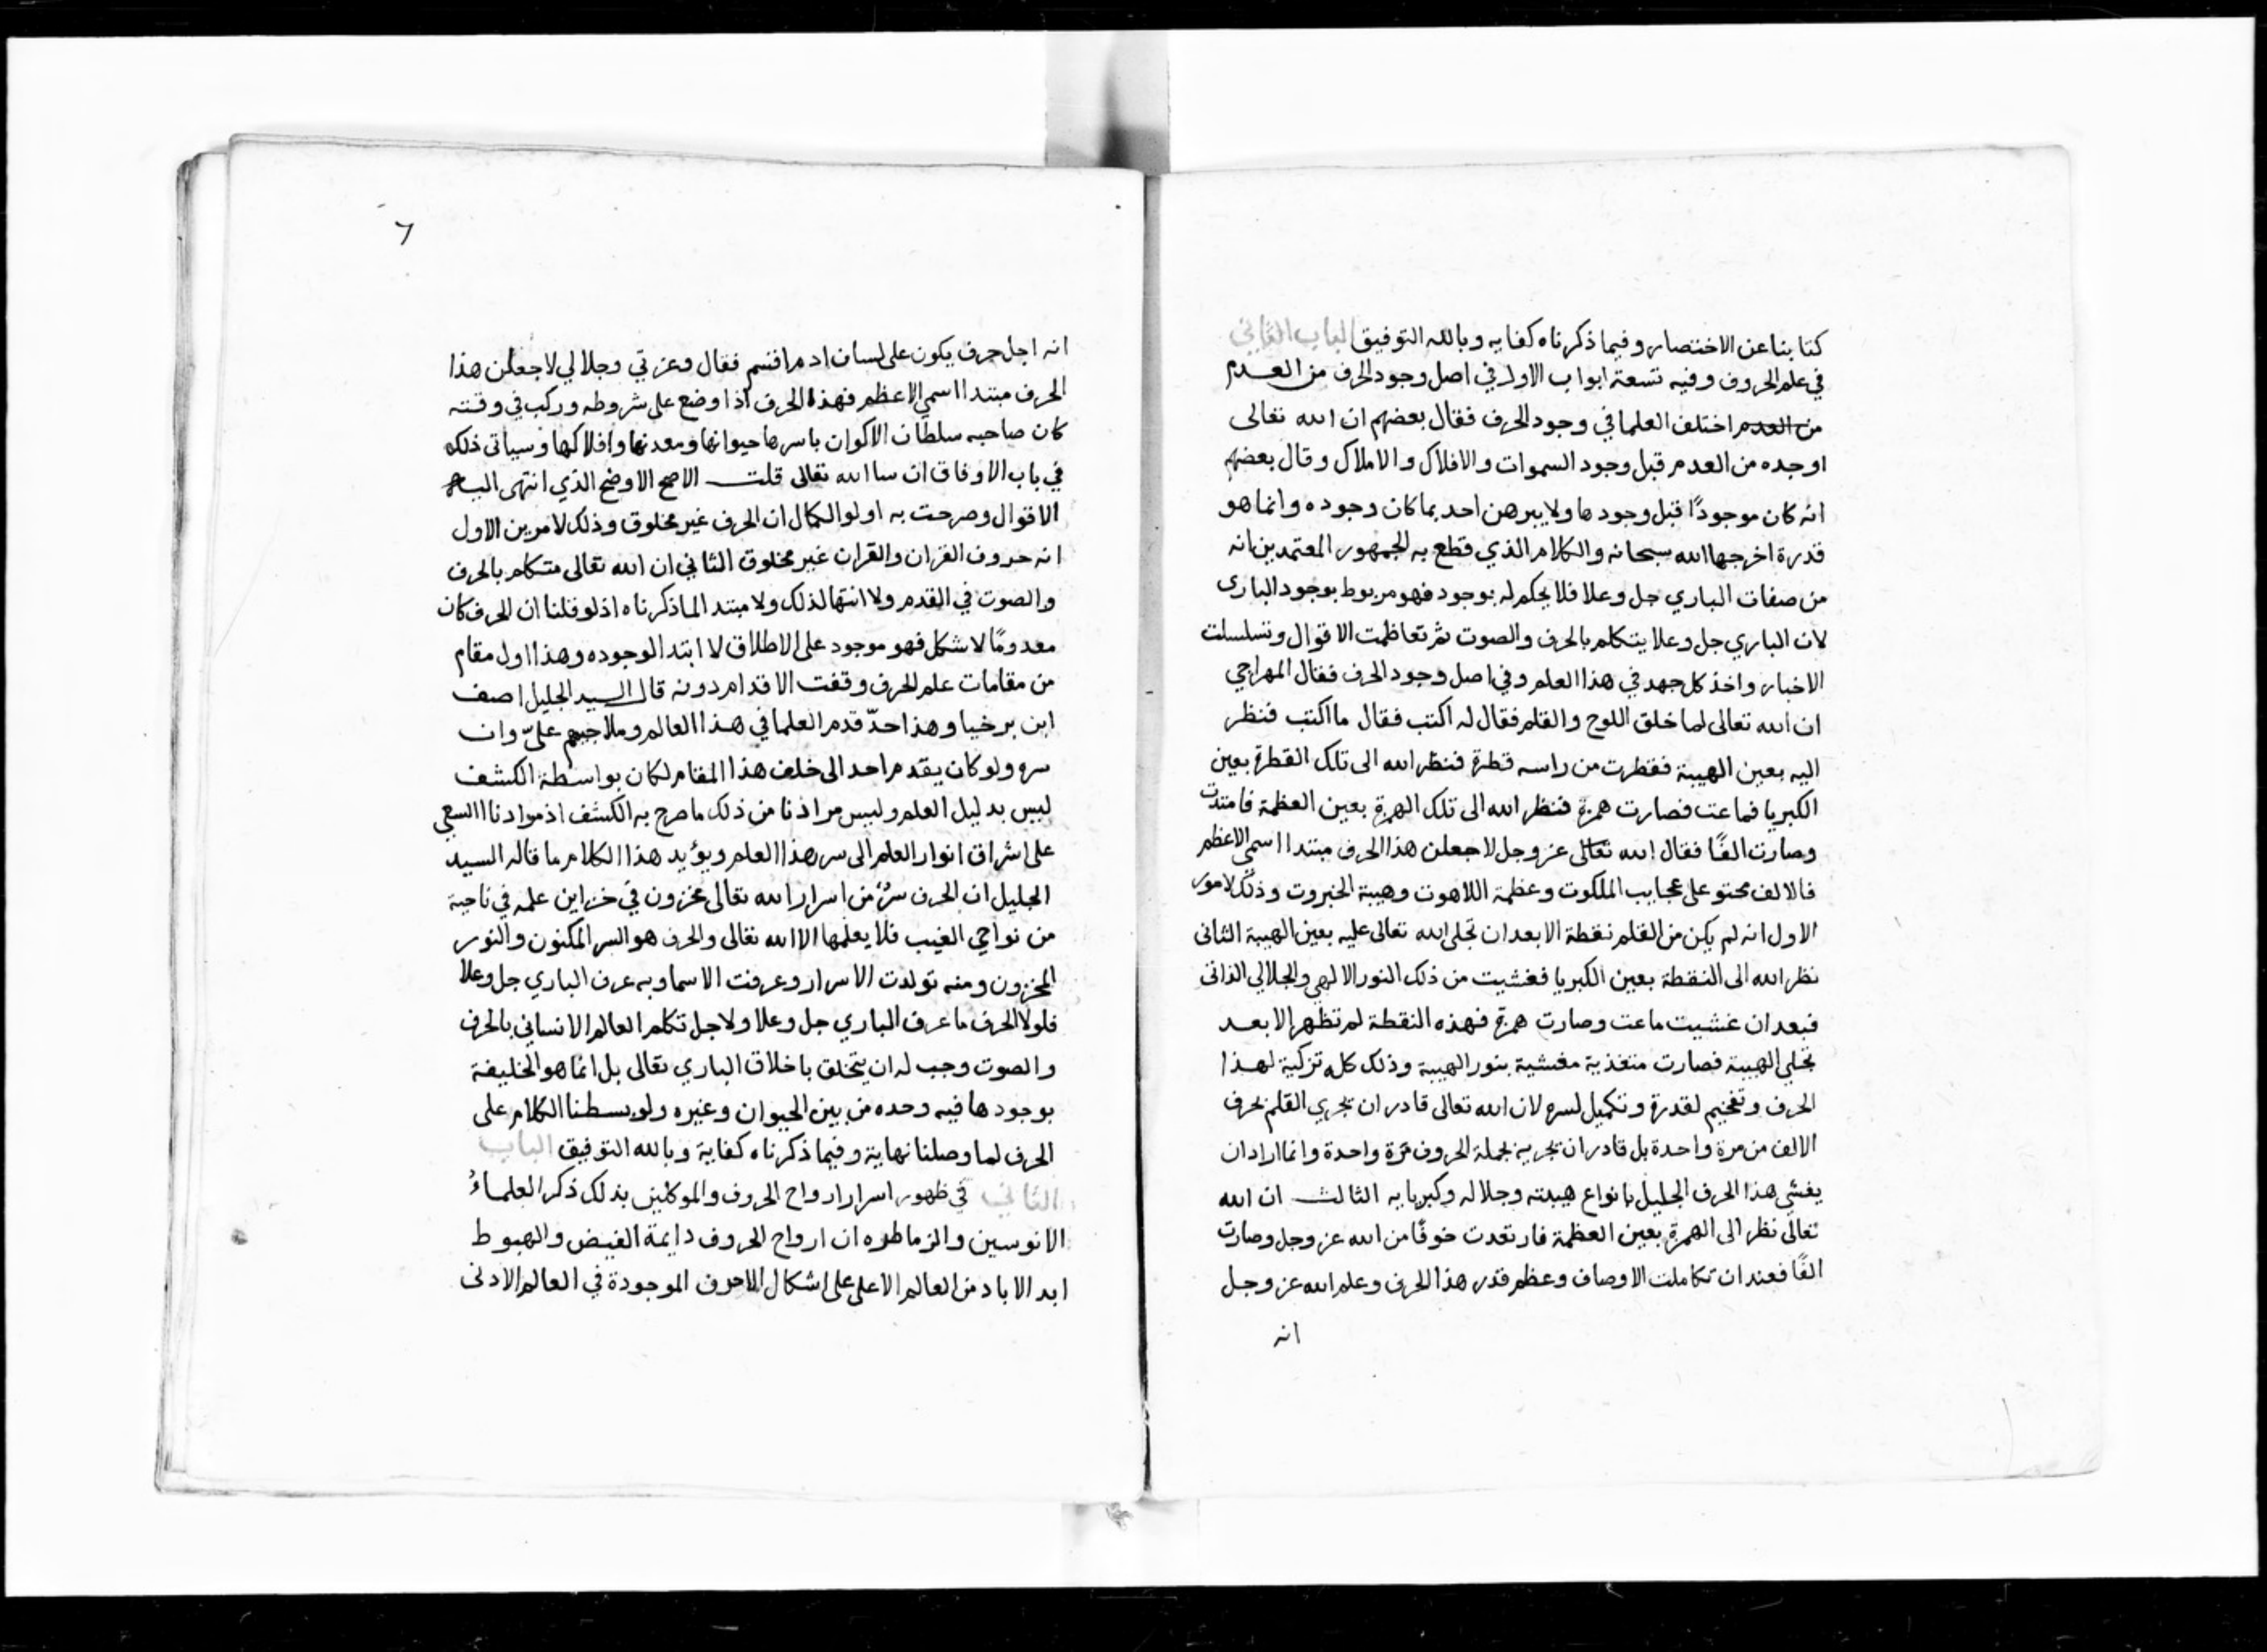 كتابنا عن الاختصار وفيما ذكرناه كفايه وبالله التوفيق الباب الثاني
في علم الحروف وفيه تسعة ابواب الاول في اصل وجود الحرف من العدم
من العدم اختلف العلما في وجود الحرف فقال بعضهم ان الله تعالى
اوجده من العدم قبل وجود السموات والافلاك والاملاك وقال بعضهم
انه كان موجودًا قبل وجودها ولا يبرهن احد بما كان وجوده وانما هو
قدرة اخرجها الله سبحانه والكلام الذي قطع به الجمهور المعتمدين انه
من صفات الباري جل وعلا فلا يحكم له بوجود فهو مربوط بوجود الباري
لان الباري جل وعلا يتكلم بالحرف والصوت ثم تعاظمت الاقوال وتسلسلت
الاخبار واخذ كل جهد في هذا العلم وفي اصل وجود الحرف فقال المهراجي
ان الله تعالى لما خلق اللوح والقلم فقال له اكتب فقال ما اكتب فنظر
اليه بعين الهيبة فقطرت من راسه قطرة فنظر الله الى تلك القطرة بعين
الكبريا فماعت فصارت همزة فنظر الله الى تلك الهمزة بعين العظمة فامتدت
وصارت الفًا فقال الله تعالى عز وجل لاجعلن هذا الحرف مبتدا اسمي الاعظم
فالالف محتو على عجايب الملكوت وعظمة اللاهوت وهيبة الجبروت وذلك لامور
الاول انه لم يكن من القلم نقطة الا بعد ان تجلى الله تعالى عليه بعين الهيبة الثاني
نظر الله الى النقطة بعين الكبريا فغشيت من ذلك النور الالهي والجلالي الذاتي
فبعد ان غشيت ماعت وصارت همزة فهذه النقطة لم تظهر الا بعد
تجلي الهيبة فصارت متغذية مغشية بنور الهيبة وذلك كله تزكية لهذا
الحرف وتفخيم لقدرة وتكميل لسره لان الله تعالى قادر ان يجري القلم بحرف
الالف من مرة واحدة بل قادر ان يجريه بجملة الحروف مرة واحدة وانما اراد ان
يغشي هذا الحرف الجليل بانواع هيبته وجلاله وكبريايه الثالث ان الله
تعالى نظر الى الهمزة بعين العظمة فارتعدت خوفًا من الله عز وجل وصارت
الفًا فعند ان تكاملت الاوصاف وعظم قدر هذا الحرف وعلم الله عز وجل
انه
٦
انه اجل حرف يكون على لسان ادم اقسم فقال وعزتي وجلالي لاجعلن هذا
الحرف مبتدا اسمي الاعظم فهذا الحرف اذا وضع على شروطه وركب في وقته
كان صاحبه سلطان الاكوان باسرها حيوانها ومعدنها وافلاكها وسياتي ذلك
في باب الاوفاق ان سا الله تعالى قلت الاصح الاوضح الذي انتهى اليه
الاقوال وصرحت به اولو الكمال ان الحرف غير مخلوق وذلك لامرين الاول
انه حروف القران والقران غير مخلوق الثاني ان الله تعالى متكلم بالحرف
والصوت في القدم ولا انتها لذلك ولا مبتدا لما ذكرناه اذ لو قلنا ان الحرف كان
معدومًا لاشكل فهو موجود على الاطلاق لا ابتدا لوجوده وهذا اول مقام
من مقامات علم الحرف وقفت الاقدام دونه قال السيد الجليل اصف
ابن برخيا وهذا حدّ قدم العلما في هذا العالم وملاجيهم علىّ وان
سره ولو كان يقدم احد الى خلف هذا المقام لكان بواسطة الكشف
ليس بدليل العلم وليس مرادنا من ذلك ما صرح به الكشف اذ موادنا السعي
على اشراق انوار العلم الى سر هذا العلم ويؤيد هذا الكلام ما قاله السيد
الجليل ان الحرف سرٌ من اسرار الله تعالى مخزون في خزاين علمه في ناحية
من نواحي الغيب فلا يعلمها الا الله تعالى والحرف هو السر المكنون والنور
المخزون ومنه تولدت الاسرار وعرفت الاسما وبه عرف الباري جل وعلا
فلولا الحرف ما عرف الباري جل وعلا ولاجل تكلم العالم الانساني بالحرف
والصوت وجب له ان يتخلق باخلاق الباري تعالى بل انما هو الخليفة
بوجودها فيه وحده من بين الحيوان وغيره ولو بسطنا الكلام على
الحرف لما وصلنا نهاية وفيما ذكرناه كفاية وبالله التوفيق الباب
الثاني في ظهور اسرار ارواح الحروف والموكلين بذلك ذكر العلماءُ
الانوسين والزماطره ان ارواح الحروف دايمة الفيض والهبوط
ابد الاباد من العالم الاعلى على اشكال الاحرف الموجودة في العالم الادنى